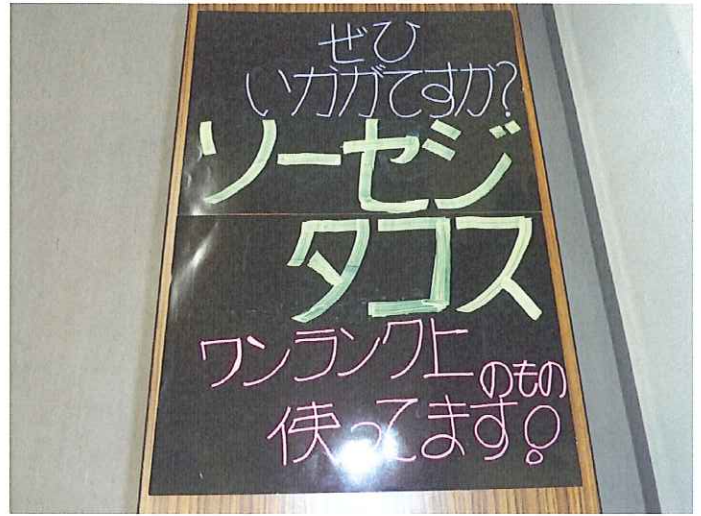 ぜひ
いかがですか?
ソーセジ
タコス
ワンランク上のもの
使ってます!